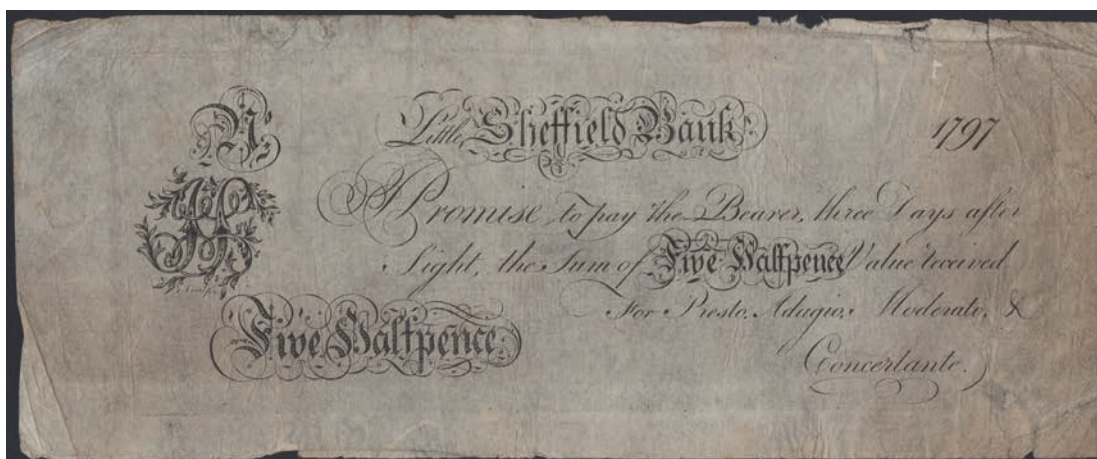 No.
Little Sheffield Bank
1797
I Promise to pay the Bearer, three Days after
Sight, the Sum of Five Halfpence Value received
For Presto, Adagio, Moderato, &
Concertante.
Five Halfpence